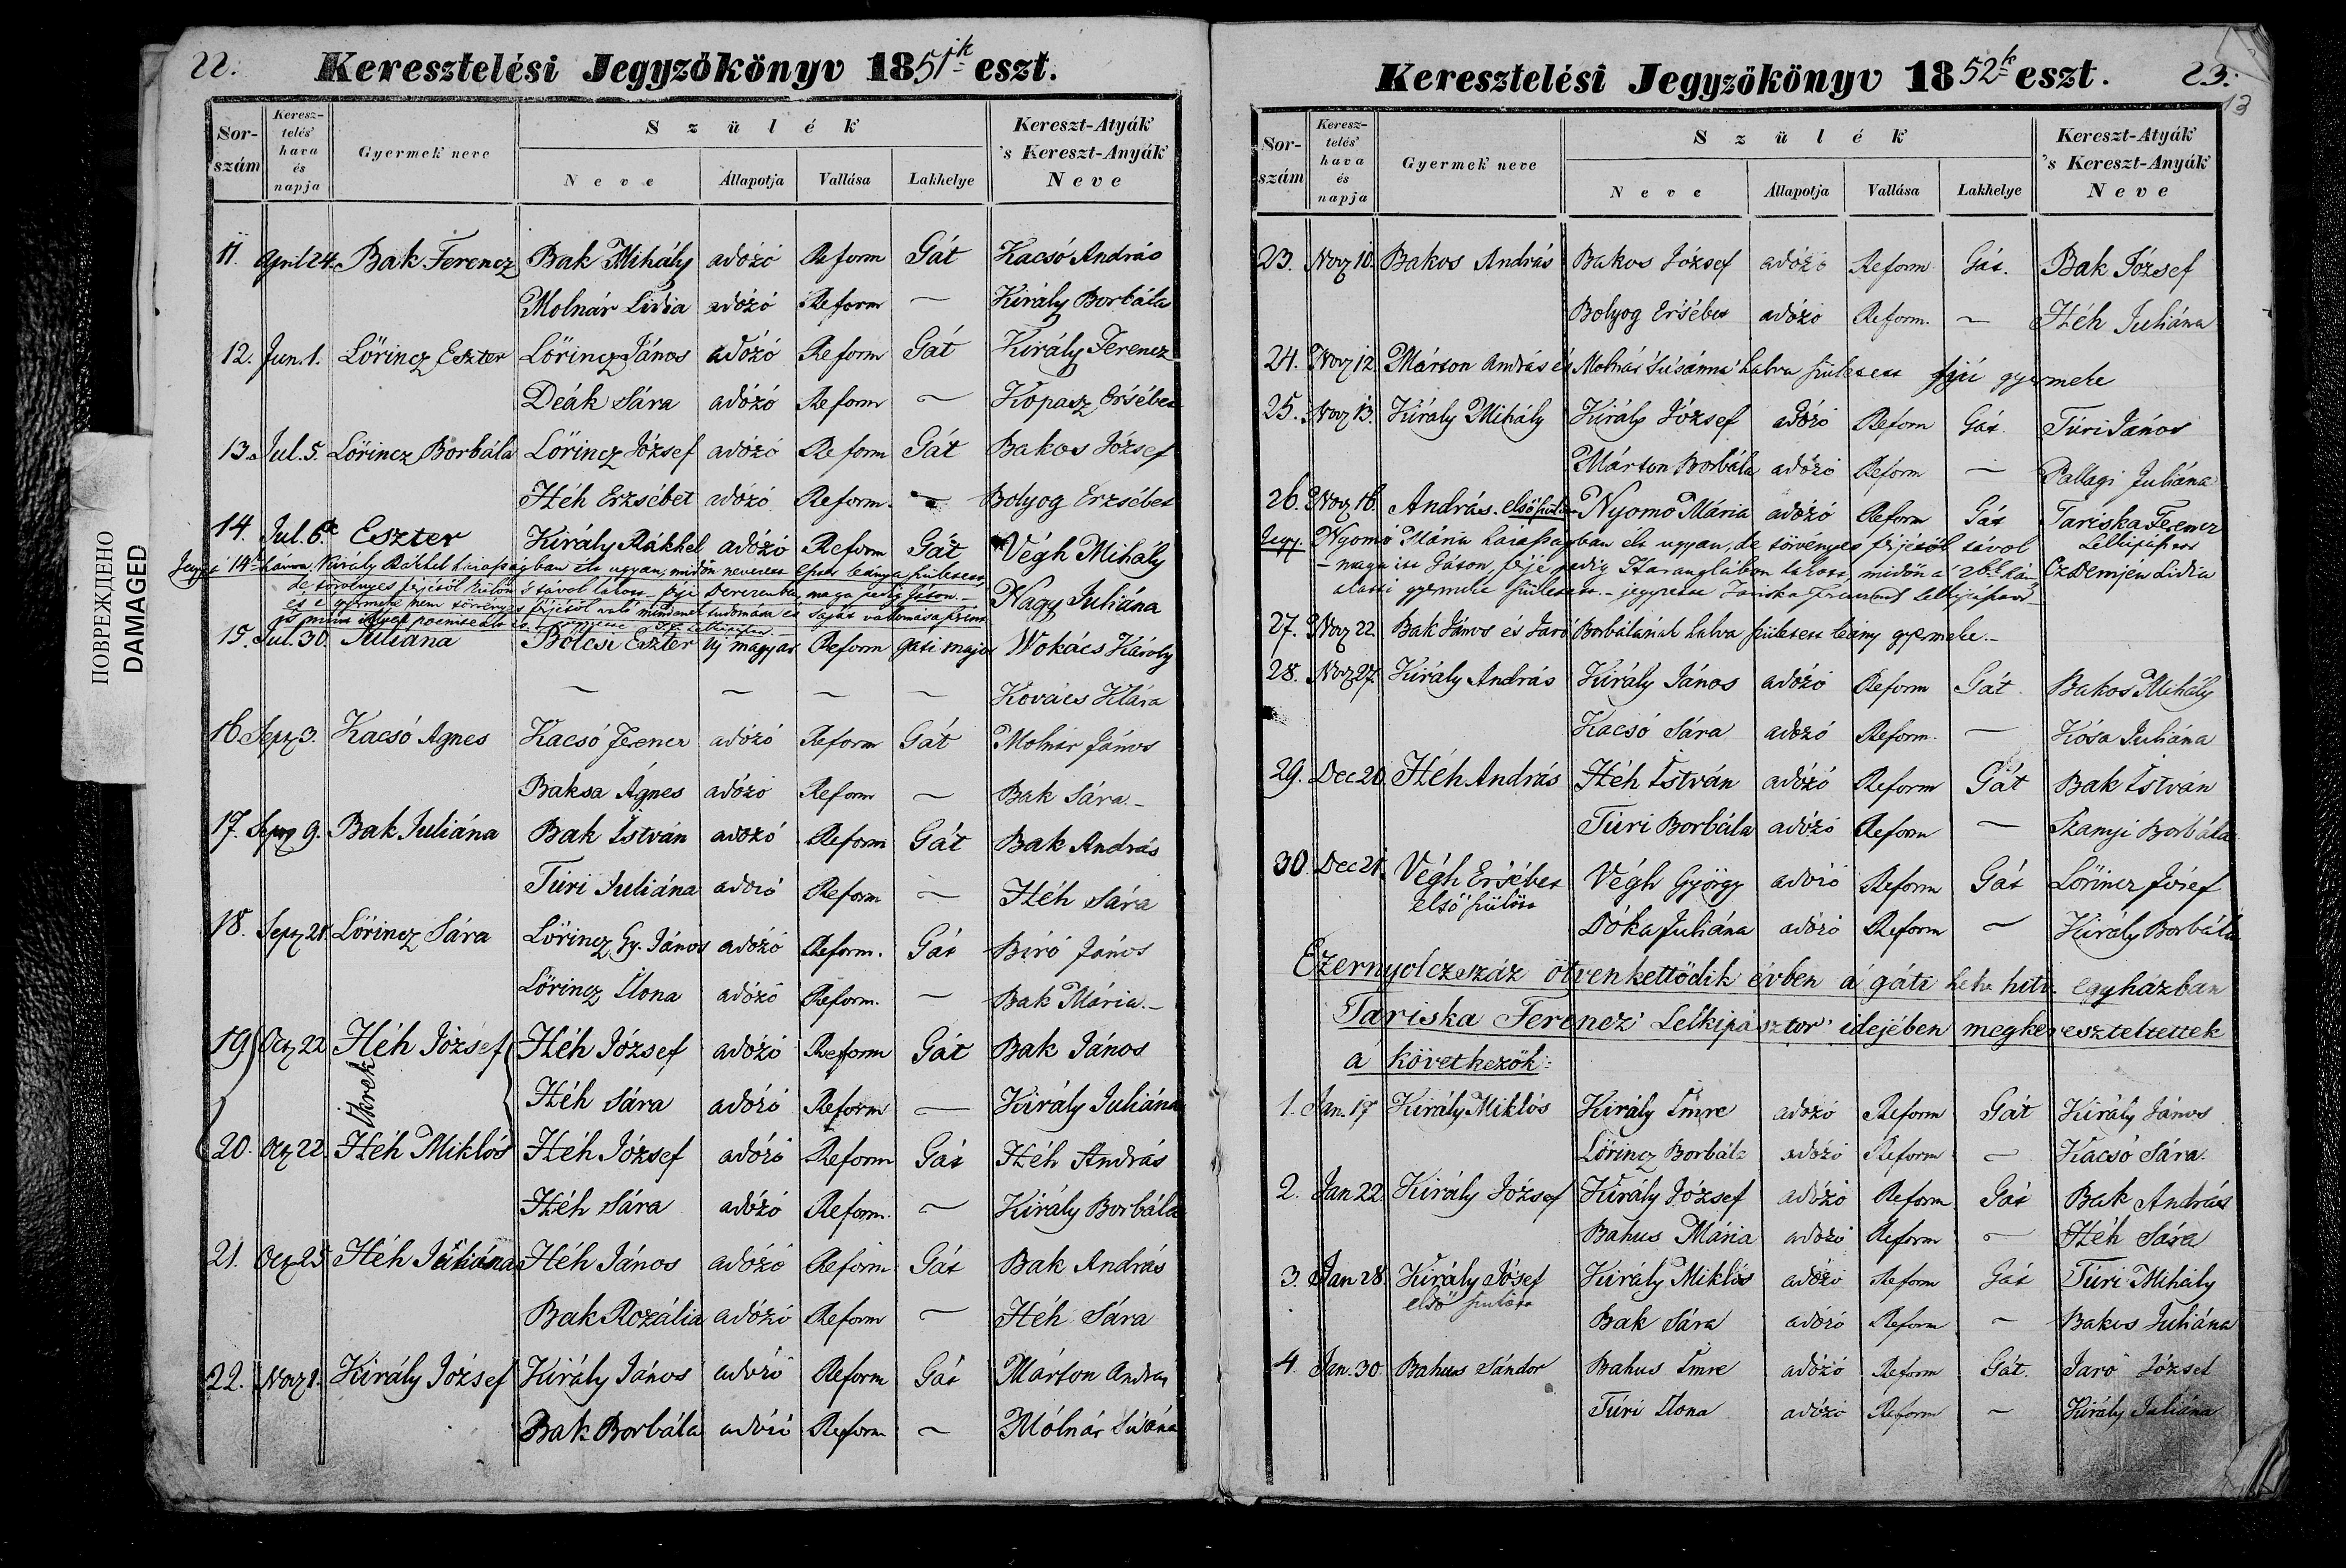 22.
Keresztelési Jegyzőkönyv 1851ik eszt.
Sor-szám
Keresz-telés' hava és napja
Gyermek neve
Szülék
Neve
Állapotja
Vallása
Lakhelye
Kereszt-Atyák 's Kereszt-Anyák Neve
11. April 24. Bak Ferencz Bak Mihály adózó Reform Gát Kacsó András
Molnár Lidia adózó Reform — Király Borbála
12. Jun. 1. Lőrincz Eszter Lőrincz János adózó Reform Gát Király Ferencz
Deák Sára adózó Reform — Kopasz Ersébet
13. Jul. 5. Lőrincz Borbála Lőrincz József adózó Reform Gát Bakos József
Héh Erzsébet adózó Reform. — Bolyog Erzsébet
14. Jul. 6 Eszter Király Rákhel adózó Reform Gát Végh Mihály
Király Rákhel házasságban élt ugyan, midőn nevezett Eszter leánya született
de törvényes férjétől külön 's távol lakott férje maga pedig Gáton.
Nagy Juliána
és e gyermeke nem törvényes férjétől való mindenek tudomása és saját vallomása szerint
15. Jul. 30. Juliána Bölcsi Eszter új magyar Reform gáti major Wokács Károly
— — — — Kovács Klára
16. Sept 3. Kacsó Agnes Kacsó Ferencz adózó Reform Gát Molnár János
Baksa Ágnes adózó Reform — Bak Sára.—
17. Sept 9. Bak Juliána Bak István adózó Reform Gát Bak András
Túri Juliána adózó Reform — Héh Sára
18. Sept 21. Lőrincz Sára Lőrincz Gy. János adózó Reform. Gát Biró János
Lőrincz Ilona adózó Reform. — Bak Mária.—
19) Oct 22 Héh József Héh József adózó Reform Gát Bak János
Ikrek
Héh Sára adózó Reform — Király Juliána
20. Oct 22. Héh Miklós Héh József adózó Reform Gát Héh András
Héh Sára adózó Reform. — Király Borbála
21. Oct 25 Héh Juliána Héh János adózó Reform Gát Bak András
Bak Rozália adózó Reform — Héh Sára
22. Nov 1. Király József Király János adózó Reform Gát Márton András
Bak Borbála adózó Reform — Mólnár Súsána
ПОВРЕЖДЕНО
DAMAGED
Keresztelési Jegyzőkönyv 1852k eszt.
23.
13
Sor-szám
Keresz-telés' hava és napja
Gyermek neve
Szülék
Neve
Állapotja
Vallása
Lakhelye
Kereszt-Atyák 's Kereszt-Anyák Neve
23. Nov 10. Bakos András Bakos József adózó Reform Gát. Bak József
Bolyog Ersébet adózó Reform. — Héh Juliána
24. Nov 12. Márton András és Molnár Súsánna' halva született fiú gyermeke
25. Nov 13. Király Mihály Király József adózó Reform Gát. Túri János
Márton Borbála adózó Reform — Pallagi Juliána
26. Nov 16. András. első szülött Nyomó Mária adózó Reform Gát Tariska Ferencz
Lelkipásztor
Jegy. Nyomó Mária házasságban élt ugyan, de törvényes férjétől távol
— maga itt Gáton, férje pedig lakott, midőn a' 26k szám
Demjén Lidia
alatti gyermeke született. — jegyzette Tariska Ferencz Lelkipásztor
27. Nov 22. Bak János és Jaró Borbálának halva született leány gyermeke.—
28. Nov 27. Király András Király János adózó Reform Gát Bakos Mihály
Kacsó Sára adózó Reform. — Kósa Juliána
29. Dec 20. Héh András Héh István adózó Reform Gát Bak István
Túri Borbála adózó Reform — Szanyi Borbála
30. Dec 21. Végh Ersébet Végh György adózó Reform Gát Lőrincz József
első szülött
Dóka Juliána adózó Reform — Király Borbála
Ezernyolczszáz ötvenkettődik évben a' gáti helv. hitv. egyházban
Tariska Ferencz' Lelkipásztor' idejében megkereszteltettek
a következők:
1. Jan. 17 Király Miklós Király Imre adózó Reform Gát Király János
Lőrincz Borbála adózó Reform — Kacsó Sára.
2. Jan 22. Király József Király József adózó Reform Gát Bak András
Bahus Mária adózó Reform — Héh Sára
3. Jan 28 Király Jósef Király Miklós adózó Reform Gát Túri Mihály
első szülött
Bak Sára adózó Reform — Bakos Juliána
4. Jan. 30. Bahus Sándor Bahus Imre adózó Reform Gát. Jaró József
Túri Ilona adózó Reform — Király Juliána